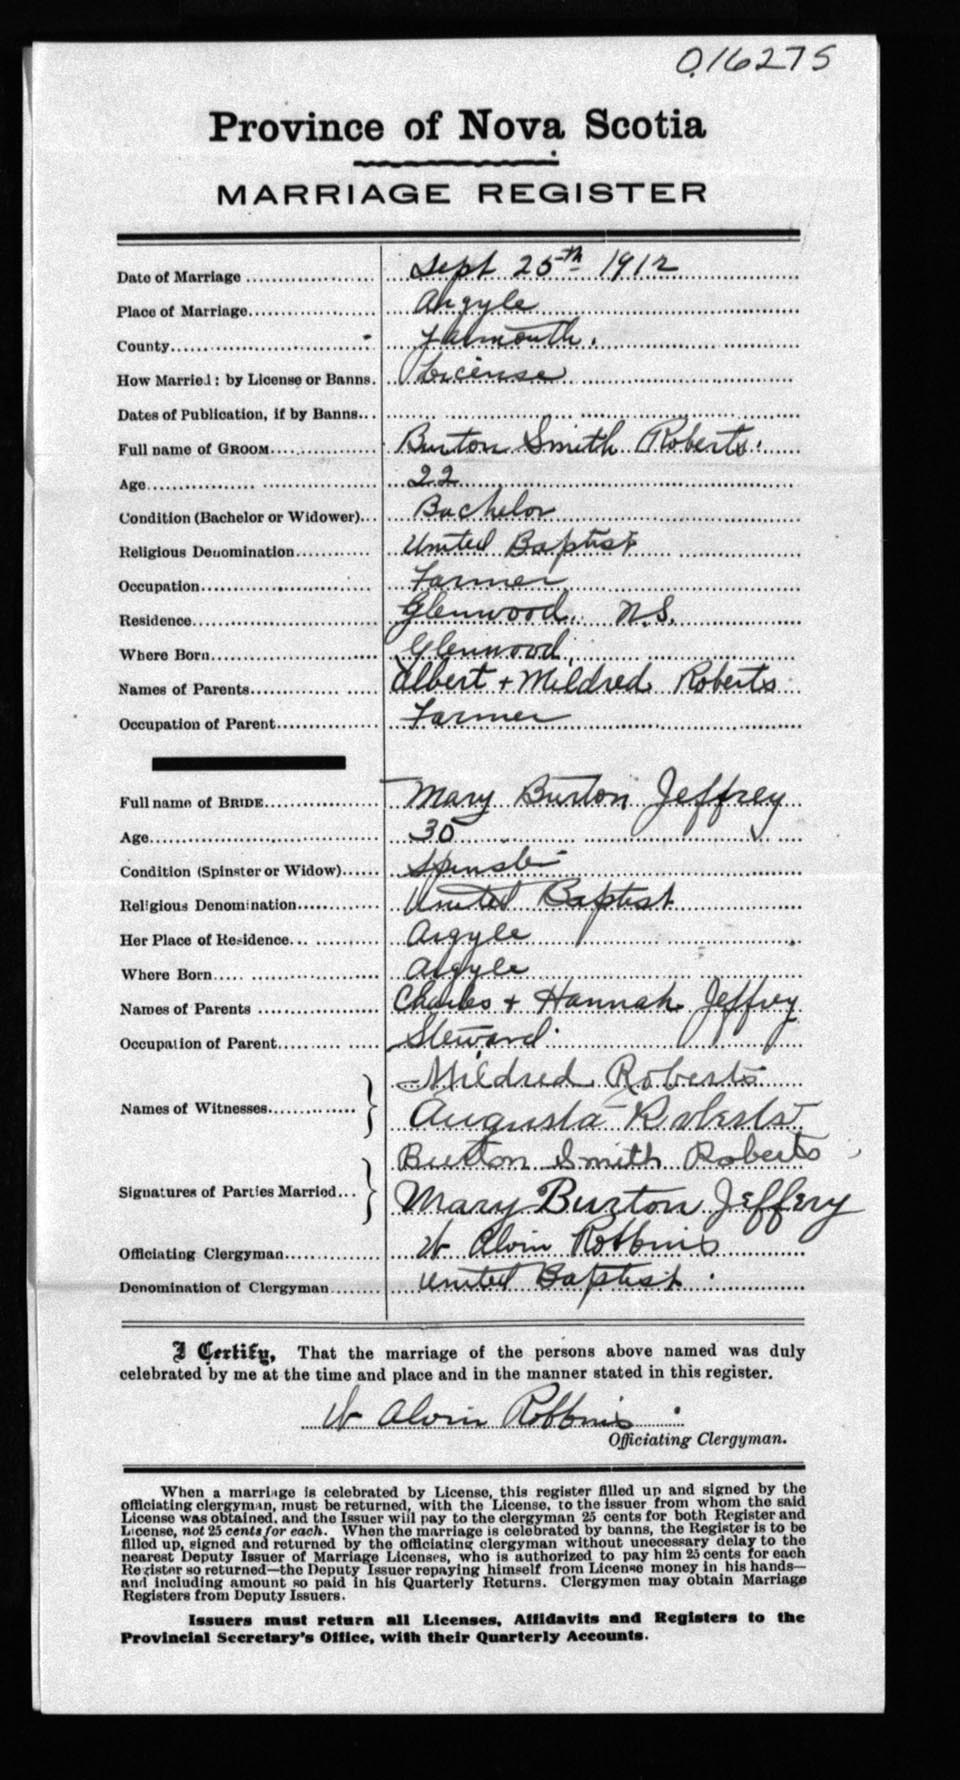 016275
Province of Nova Scotia
MARRIAGE REGISTER
Date of Marriage Sept 25th 1912
Place of Marriage Argyle
County Yarmouth.
How Married: by License or Banns. License
Dates of Publication, if by Banns
Full name of GROOM Burton Smith Roberts.
Age 22
Condition (Bachelor or Widower) Bachelor
Religious Denomination United Baptist
Occupation Farmer
Residence Glenwood. N.S.
Where Born Glenwood.
Names of Parents Albert + Mildred Roberts
Occupation of Parent Farmer
Full name of BRIDE Mary Burton Jeffrey
Age 30
Condition (Spinster or Widow) Spinster
Religious Denomination United Baptist
Her Place of Residence Argyle
Where Born Argyle
Names of Parents Charles + Hannah Jeffrey
Occupation of Parent Steward.
Mildred Roberts
Names of Witnesses Augusta Roberts
Burton Smith Roberts
Signatures of Parties Married Mary Burton Jeffery
Officiating Clergyman W Alvin Robbins
Denomination of Clergyman United Baptist.
I Certify, That the marriage of the persons above named was duly
celebrated by me at the time and place and in the manner stated in this register.
W Alvin Robbins
Officiating Clergyman.
When a marriage is celebrated by License, this register filled up and signed by the
officiating clergyman, must be returned, with the License, to the issuer from whom the said
License was obtained, and the Issuer will pay to the clergyman 25 cents for both Register and
License, not 25 cents for each. When the marriage is celebrated by banns, the Register is to be
filled up, signed and returned by the officiating clergyman without unnecessary delay to the
nearest Deputy Issuer of Marriage Licenses, who is authorized to pay him 25 cents for each
Register so returned—the Deputy Issuer repaying himself from License money in his hands—
and including amount so paid in his Quarterly Returns. Clergymen may obtain Marriage
Registers from Deputy Issuers.
Issuers must return all Licenses, Affidavits and Registers to the
Provincial Secretary's Office, with their Quarterly Accounts.